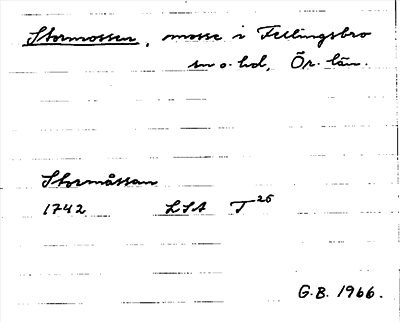 Stormossen, mosse i Fellingsbro
sn o. hd, Ör. län.
Stormåssan
1742 LSA T 26
G.B. 1966.